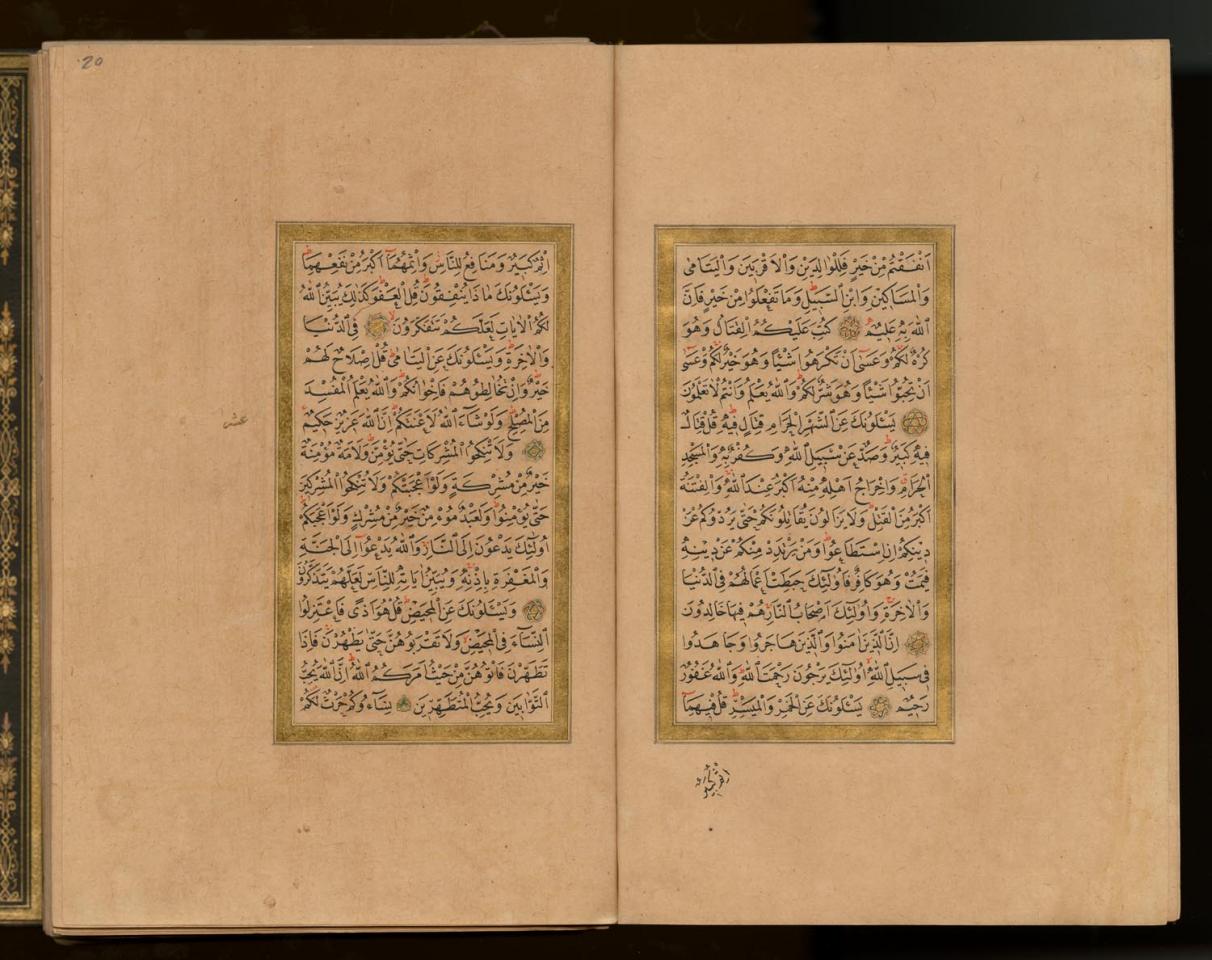 اَنْفَقْتُمْ مِنْ خَيْرٍ فَلِلْوَالِدَيْنِ وَالْاَقْرَبِينَ وَالْيَتَامٰى
وَالْمَسَاكِينِ وَابْنِ السَّبِيلِ وَمَا تَفْعَلُوا مِنْ خَيْرٍ فَاِنَّ
اللّٰهَ بِهِ عَلِيمٌ كُتِبَ عَلَيْكُمُ الْقِتَالُ وَهُوَ
كُرْهٌ لَكُمْ وَعَسٰى اَنْ تَكْرَهُوا شَيْئًا وَهُوَ خَيْرٌ لَكُمْ وَعَسٰى
اَنْ تُحِبُّوا شَيْئًا وَهُوَ شَرٌّ لَكُمْ وَاللّٰهُ يَعْلَمُ وَاَنْتُمْ لَا تَعْلَمُونَ
يَسْئَلُونَكَ عَنِ الشَّهْرِ الْحَرَامِ قِتَالٍ فِيهِ قُلْ قِتَالٌ
فِيهِ كَبِيرٌ وَصَدٌّ عَنْ سَبِيلِ اللّٰهِ وَكُفْرٌ بِهِ وَالْمَسْجِدِ
الْحَرَامِ وَاِخْرَاجُ اَهْلِهِ مِنْهُ اَكْبَرُ عِنْدَ اللّٰهِ وَالْفِتْنَةُ
اَكْبَرُ مِنَ الْقَتْلِ وَلَا يَزَالُونَ يُقَاتِلُونَكُمْ حَتّٰى يَرُدُّوكُمْ عَنْ
دِينِكُمْ اِنِ اسْتَطَاعُوا وَمَنْ يَرْتَدِدْ مِنْكُمْ عَنْ دِينِهِ
فَيَمُتْ وَهُوَ كَافِرٌ فَاُولٰئِكَ حَبِطَتْ اَعْمَالُهُمْ فِي الدُّنْيَا
وَالْاٰخِرَةِ وَاُولٰئِكَ اَصْحَابُ النَّارِ هُمْ فِيهَا خَالِدُونَ
اِنَّ الَّذِينَ اٰمَنُوا وَالَّذِينَ هَاجَرُوا وَجَاهَدُوا
فِي سَبِيلِ اللّٰهِ اُولٰئِكَ يَرْجُونَ رَحْمَتَ اللّٰهِ وَاللّٰهُ غَفُورٌ
رَحِيمٌ يَسْئَلُونَكَ عَنِ الْخَمْرِ وَالْمَيْسِرِ قُلْ فِيهِمَا
اثم كبير
20
اِثْمٌ كَبِيرٌ وَمَنَافِعُ لِلنَّاسِ وَاِثْمُهُمَا اَكْبَرُ مِنْ نَفْعِهِمَا
وَيَسْئَلُونَكَ مَاذَا يُنْفِقُونَ قُلِ الْعَفْوَ كَذٰلِكَ يُبَيِّنُ اللّٰهُ
لَكُمُ الْاٰيَاتِ لَعَلَّكُمْ تَتَفَكَّرُونَ فِي الدُّنْيَا
وَالْاٰخِرَةِ وَيَسْئَلُونَكَ عَنِ الْيَتَامٰى قُلْ اِصْلَاحٌ لَهُمْ
خَيْرٌ وَاِنْ تُخَالِطُوهُمْ فَاِخْوَانُكُمْ وَاللّٰهُ يَعْلَمُ الْمُفْسِدَ
مِنَ الْمُصْلِحِ وَلَوْ شَاءَ اللّٰهُ لَاَعْنَتَكُمْ اِنَّ اللّٰهَ عَزِيزٌ حَكِيمٌ
عشر
وَلَا تَنْكِحُوا الْمُشْرِكَاتِ حَتّٰى يُؤْمِنَّ وَلَاَمَةٌ مُؤْمِنَةٌ
خَيْرٌ مِنْ مُشْرِكَةٍ وَلَوْ اَعْجَبَتْكُمْ وَلَا تُنْكِحُوا الْمُشْرِكِينَ
حَتّٰى يُؤْمِنُوا وَلَعَبْدٌ مُؤْمِنٌ خَيْرٌ مِنْ مُشْرِكٍ وَلَوْ اَعْجَبَكُمْ
اُولٰئِكَ يَدْعُونَ اِلَى النَّارِ وَاللّٰهُ يَدْعُوا اِلَى الْجَنَّةِ
وَالْمَغْفِرَةِ بِاِذْنِهِ وَيُبَيِّنُ اٰيَاتِهِ لِلنَّاسِ لَعَلَّهُمْ يَتَذَكَّرُونَ
وَيَسْئَلُونَكَ عَنِ الْمَحِيضِ قُلْ هُوَ اَذًى فَاعْتَزِلُوا
النِّسَاءَ فِي الْمَحِيضِ وَلَا تَقْرَبُوهُنَّ حَتّٰى يَطْهُرْنَ فَاِذَا
تَطَهَّرْنَ فَاْتُوهُنَّ مِنْ حَيْثُ اَمَرَكُمُ اللّٰهُ اِنَّ اللّٰهَ يُحِبُّ
التَّوَّابِينَ وَيُحِبُّ الْمُتَطَهِّرِينَ نِسَاؤُكُمْ حَرْثٌ لَكُمْ